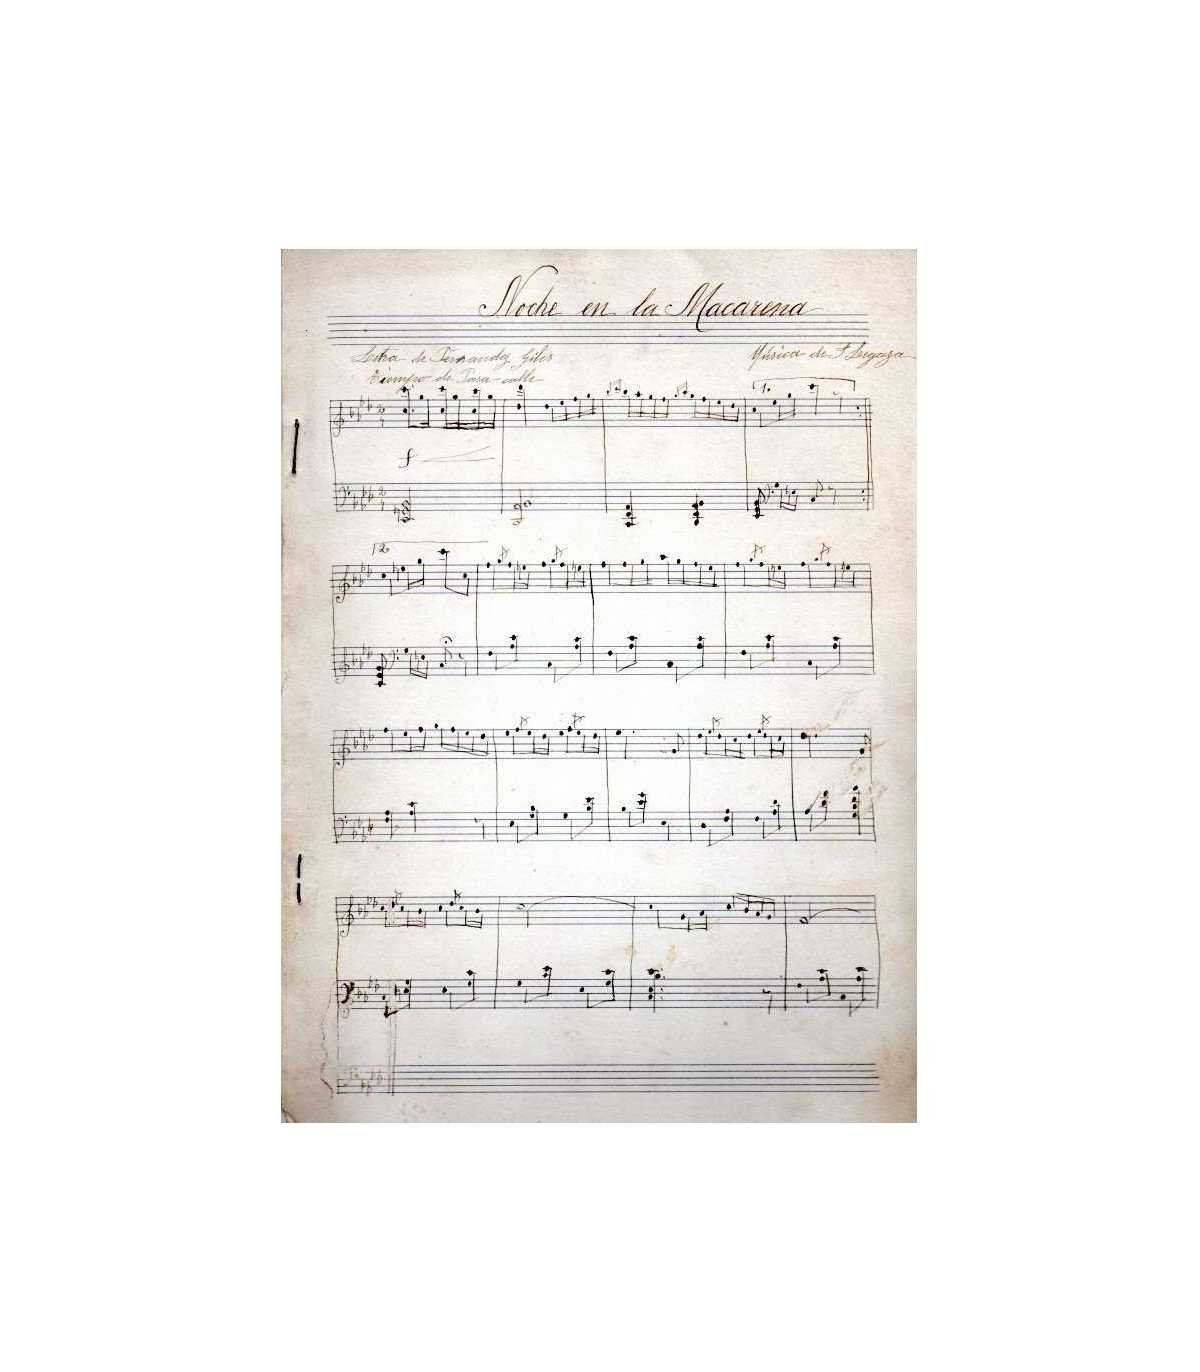 Noche en la Macarena
Letra de Fernandez Giles
Música de F Legaza
Tiempo de Pasa-calle
1.
f
2.